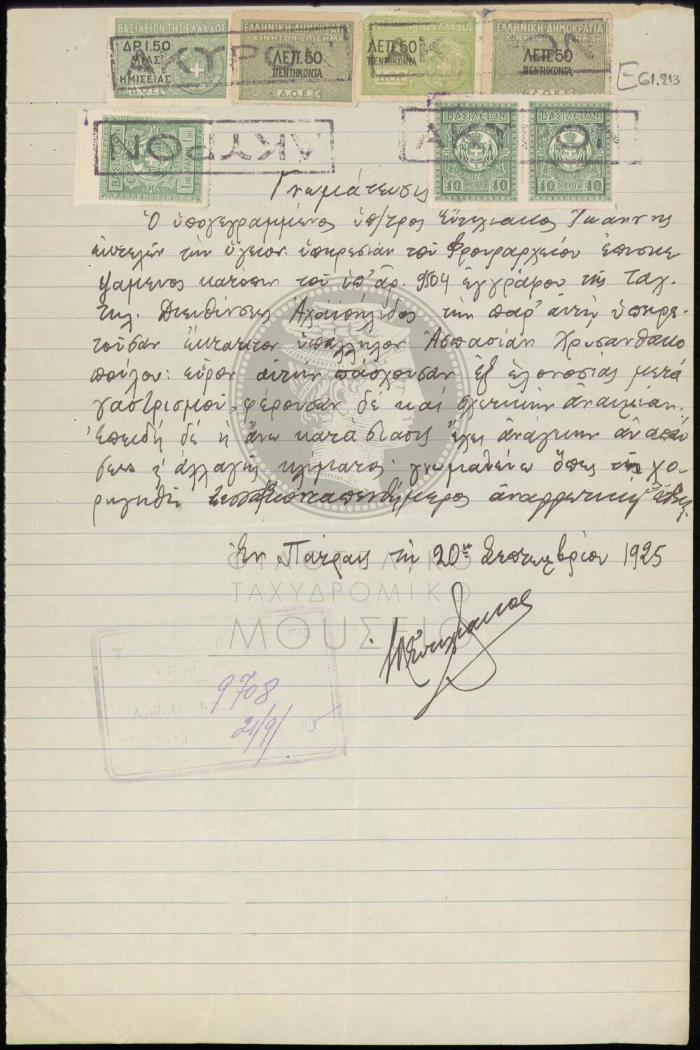 ΒΑΣΙΛΕΙΟΝ ΤΗΣ ΕΛΛΑΔΟΣ
ΔΡ.1.50
ΜΙΑΣ
ΚΑΙ
ΗΜΙΣΕΙΑΣ
Δ.Ο.Ε.
ΕΛΛΗΝΙΚΗ·ΔΗΜΟΚΡΑΤΙΑ
ΚΙΝΗΤΟΝ ΕΠΙΣΗΜΑ
ΛΕΠ.50
ΠΕΝΤΗΚΟΝΤΑ
Δ.Ο.Ε.
ΛΕΠ.50
ΠΕΝΤΗΚΟΝΤΑ
Δ.Ο.Ε.
ΕΛΛΗΝΙΚΗ·ΔΗΜΟΚΡΑΤΙΑ
ΛΕΠ.50
ΠΕΝΤΗΚΟΝΤΑ
ΑΚΥΡΟΝ
E61.213
ΑΚΥΡΟΝ
ΑΚΥΡΟΝ
ΒΑΣΙΛΕΙΟΝ
10 ΛΕΠΤΑ 10
ΒΑΣΙΛΕΙΟΝ
10 ΛΕΠΤΑ 10
Γνωμάτευσις
Ὁ ὑπογεγραμμένος ὑπ/τρος Ἰωάννης
ἐκτελῶν τὴν ὑγειον. ὑπηρεσίαν τοῦ Φρουραρχείου ἐπισκε
ψάμενος κατόπιν τοῦ ὑπ' ἀρ. 9504 ἐγγράφου τῆς Ταχ.
τηλ. Διευθύνσεως Ἀχαϊοήλιδος τὴν παρ' αὐτῇ ὑπηρε-
τοῦσαν ἔκτακτον ὑπάλληλον Ἀσπασίαν Χρυσανθακο
πούλου: εὗρον αὐτὴν πάσχουσαν ἐξ ἑλονοσίας μετὰ
γαστρισμοῦ φέρουσαν δὲ καὶ σχετικὴν ἀναιμίαν.
Ἐπειδὴ δὲ ἡ ἄνω κατάστασις ἔχει ἀνάγκην ἀναπαύ
σεως ἢ ἀλλαγῆς κλίματος γνωματεύω ὅπως τῇ χο-
ρηγηθῇ ἀναρρωτικὴ
Ἐν Πάτραις τῇ 20ῃ Σεπτεμβρίου 1925
ΦΙΛΟΤΕΛΙΚΟ
ΤΑΧΥΔΡΟΜΙΚΟ
ΜΟΥΣΕΙΟ
9708
21/9/25